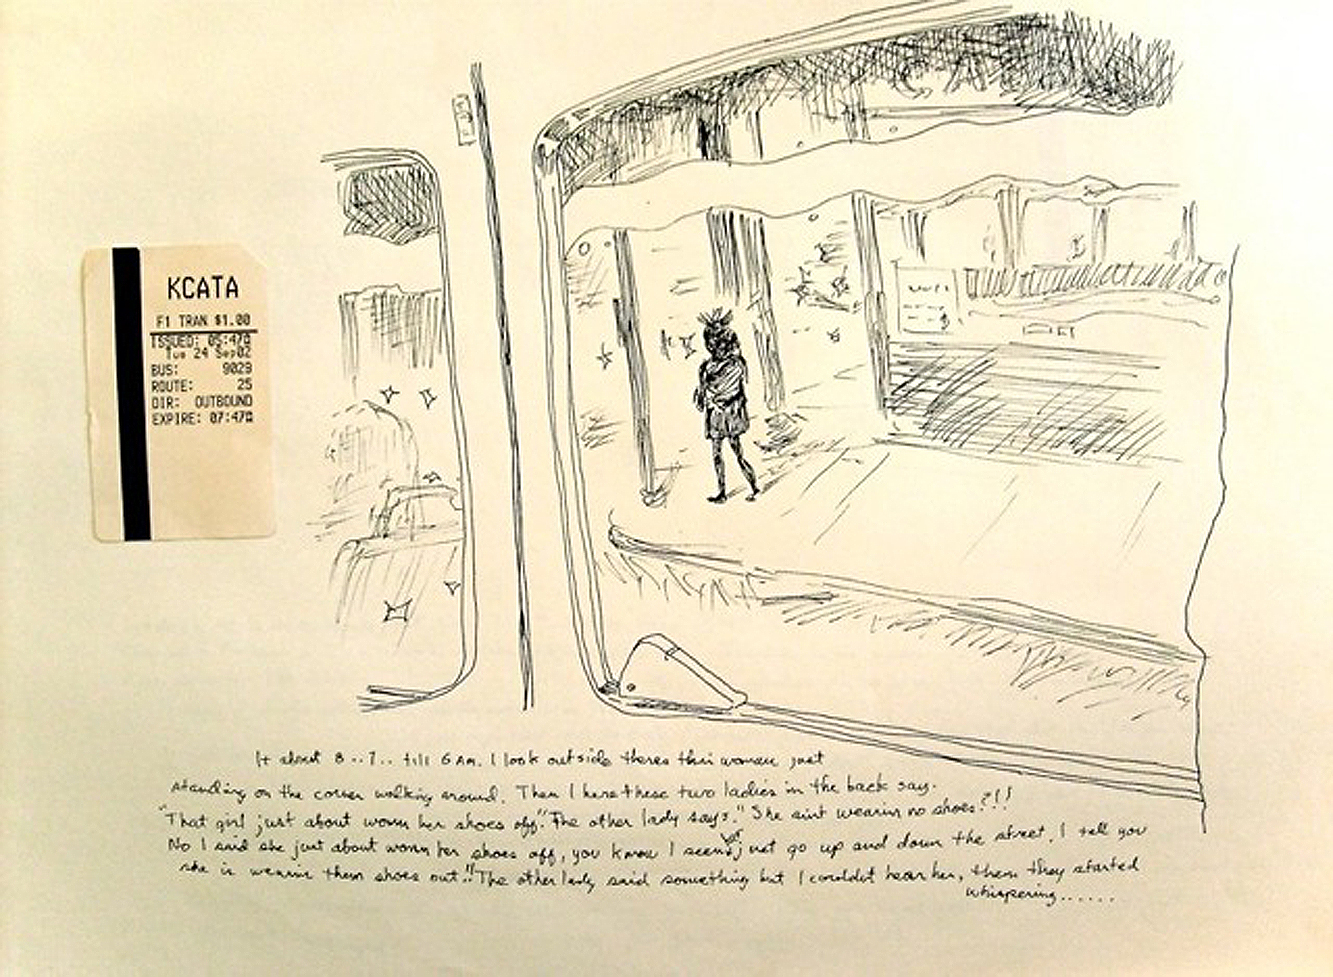 KCATA
F1 TRAN $1.00
ISSUED: 05:47a
Tue 24 Sep02
BUS: 9029
ROUTE: 25
DIR: OUTBOUND
EXPIRE: 07:47a
It about 8..7.. till 6 Am. I look outside theres this woman just
standing on the corner walking around. Then I here these two ladies in the back say.
"That girl just about worn her shoes off." The other lady says." She aint wearin no shoes?!!
No I said she just about worn her shoes off, you know I seen her just go up and down the street. I tell you
she is wearin them shoes out!! The other lady said something but I couldnt hear her, then they started
whispering......